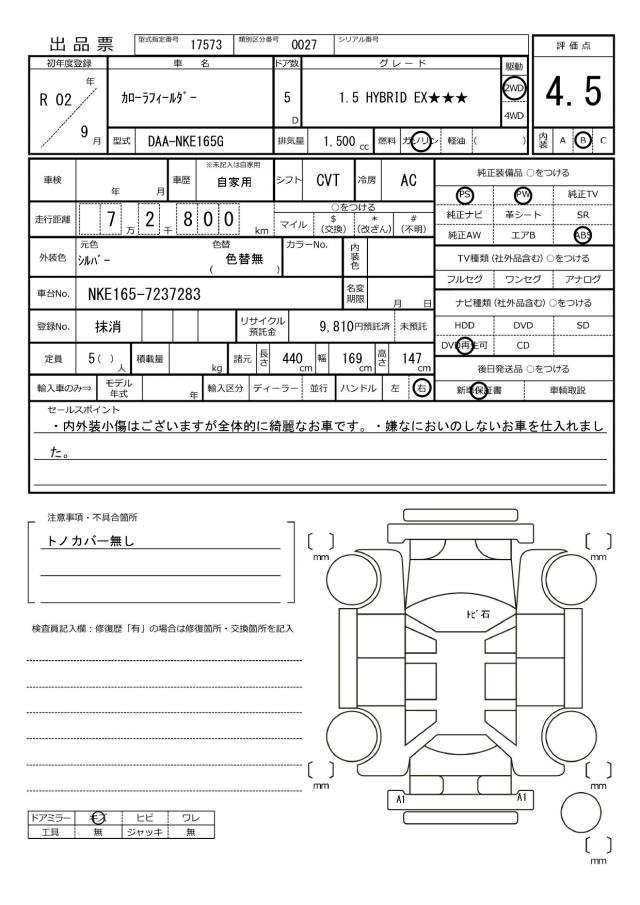 出品票 型式指定番号 17573 類別区分番号 0027 シリアル番号
評価点
初年度登録 車名 ドア数 グレード 駆動
R 02 年 9 月 カローラフィールダー 5 D 1.5 HYBRID EX★★★ 2WD 4WD
4.5
型式 DAA-NKE165G 排気量 1,500 cc 燃料 ガソリン 軽油 ( )
内装 A B C
車検 年 月 車歴 ※未記入は自家用 自家用 シフト CVT 冷房 AC
純正装備品 ○をつける
PS PW 純正TV
純正ナビ 革シート SR
純正AW エアB ABS
走行距離 7 万 2 千 8 0 0 km
○をつける
マイル $ (交換) * (改ざん) # (不明)
外装色 元色 シルバー 色替 ( 色替無 ) カラーNo. 内装色
TV種類 (社外品含む) ○をつける
フルセグ ワンセグ アナログ
車台No. NKE165-7237283 名変期限 月 日
ナビ種類 (社外品含む) ○をつける
登録No. 抹消 リサイクル預託金 9,810円預託済 未預託
HDD DVD SD
DVD再生可 CD
定員 5 ( ) 人 積載量 kg 諸元 長さ 440 cm 幅 169 cm 高さ 147 cm
後日発送品 ○をつける
輸入車のみ⇒ モデル年式 年 輸入区分 ディーラー 並行 ハンドル 左 右
新車保証書 車輌取説
セールスポイント
・内外装小傷はございますが全体的に綺麗なお車です。・嫌なにおいのしないお車を仕入れまし
た。
注意事項・不具合箇所
トノカバー無し
検査員記入欄：修復歴「有」の場合は修復箇所・交換箇所を記入
〔 〕 mm
〔 〕 mm
トビ石
〔 〕 mm
〔 〕 mm
A1 A1
〔 〕 mm
ドアミラー キズ ヒビ ワレ
工具 無 ジャッキ 無